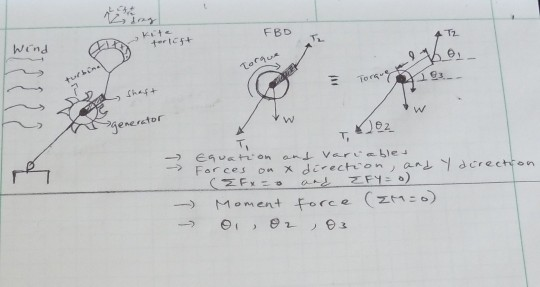 Lift
drag
Kite
for lift
Wind
turbine
shaft
generator
FBD
T2
Torque
W
T1
≡
T2
θ1
θ3
Torque
W
T1
θ2
→ Equation and Variables
→ Forces on X direction, and Y direction
(ΣFx=0 and ΣFY=0)
→ Moment force (ΣM=0)
→ θ1, θ2, θ3